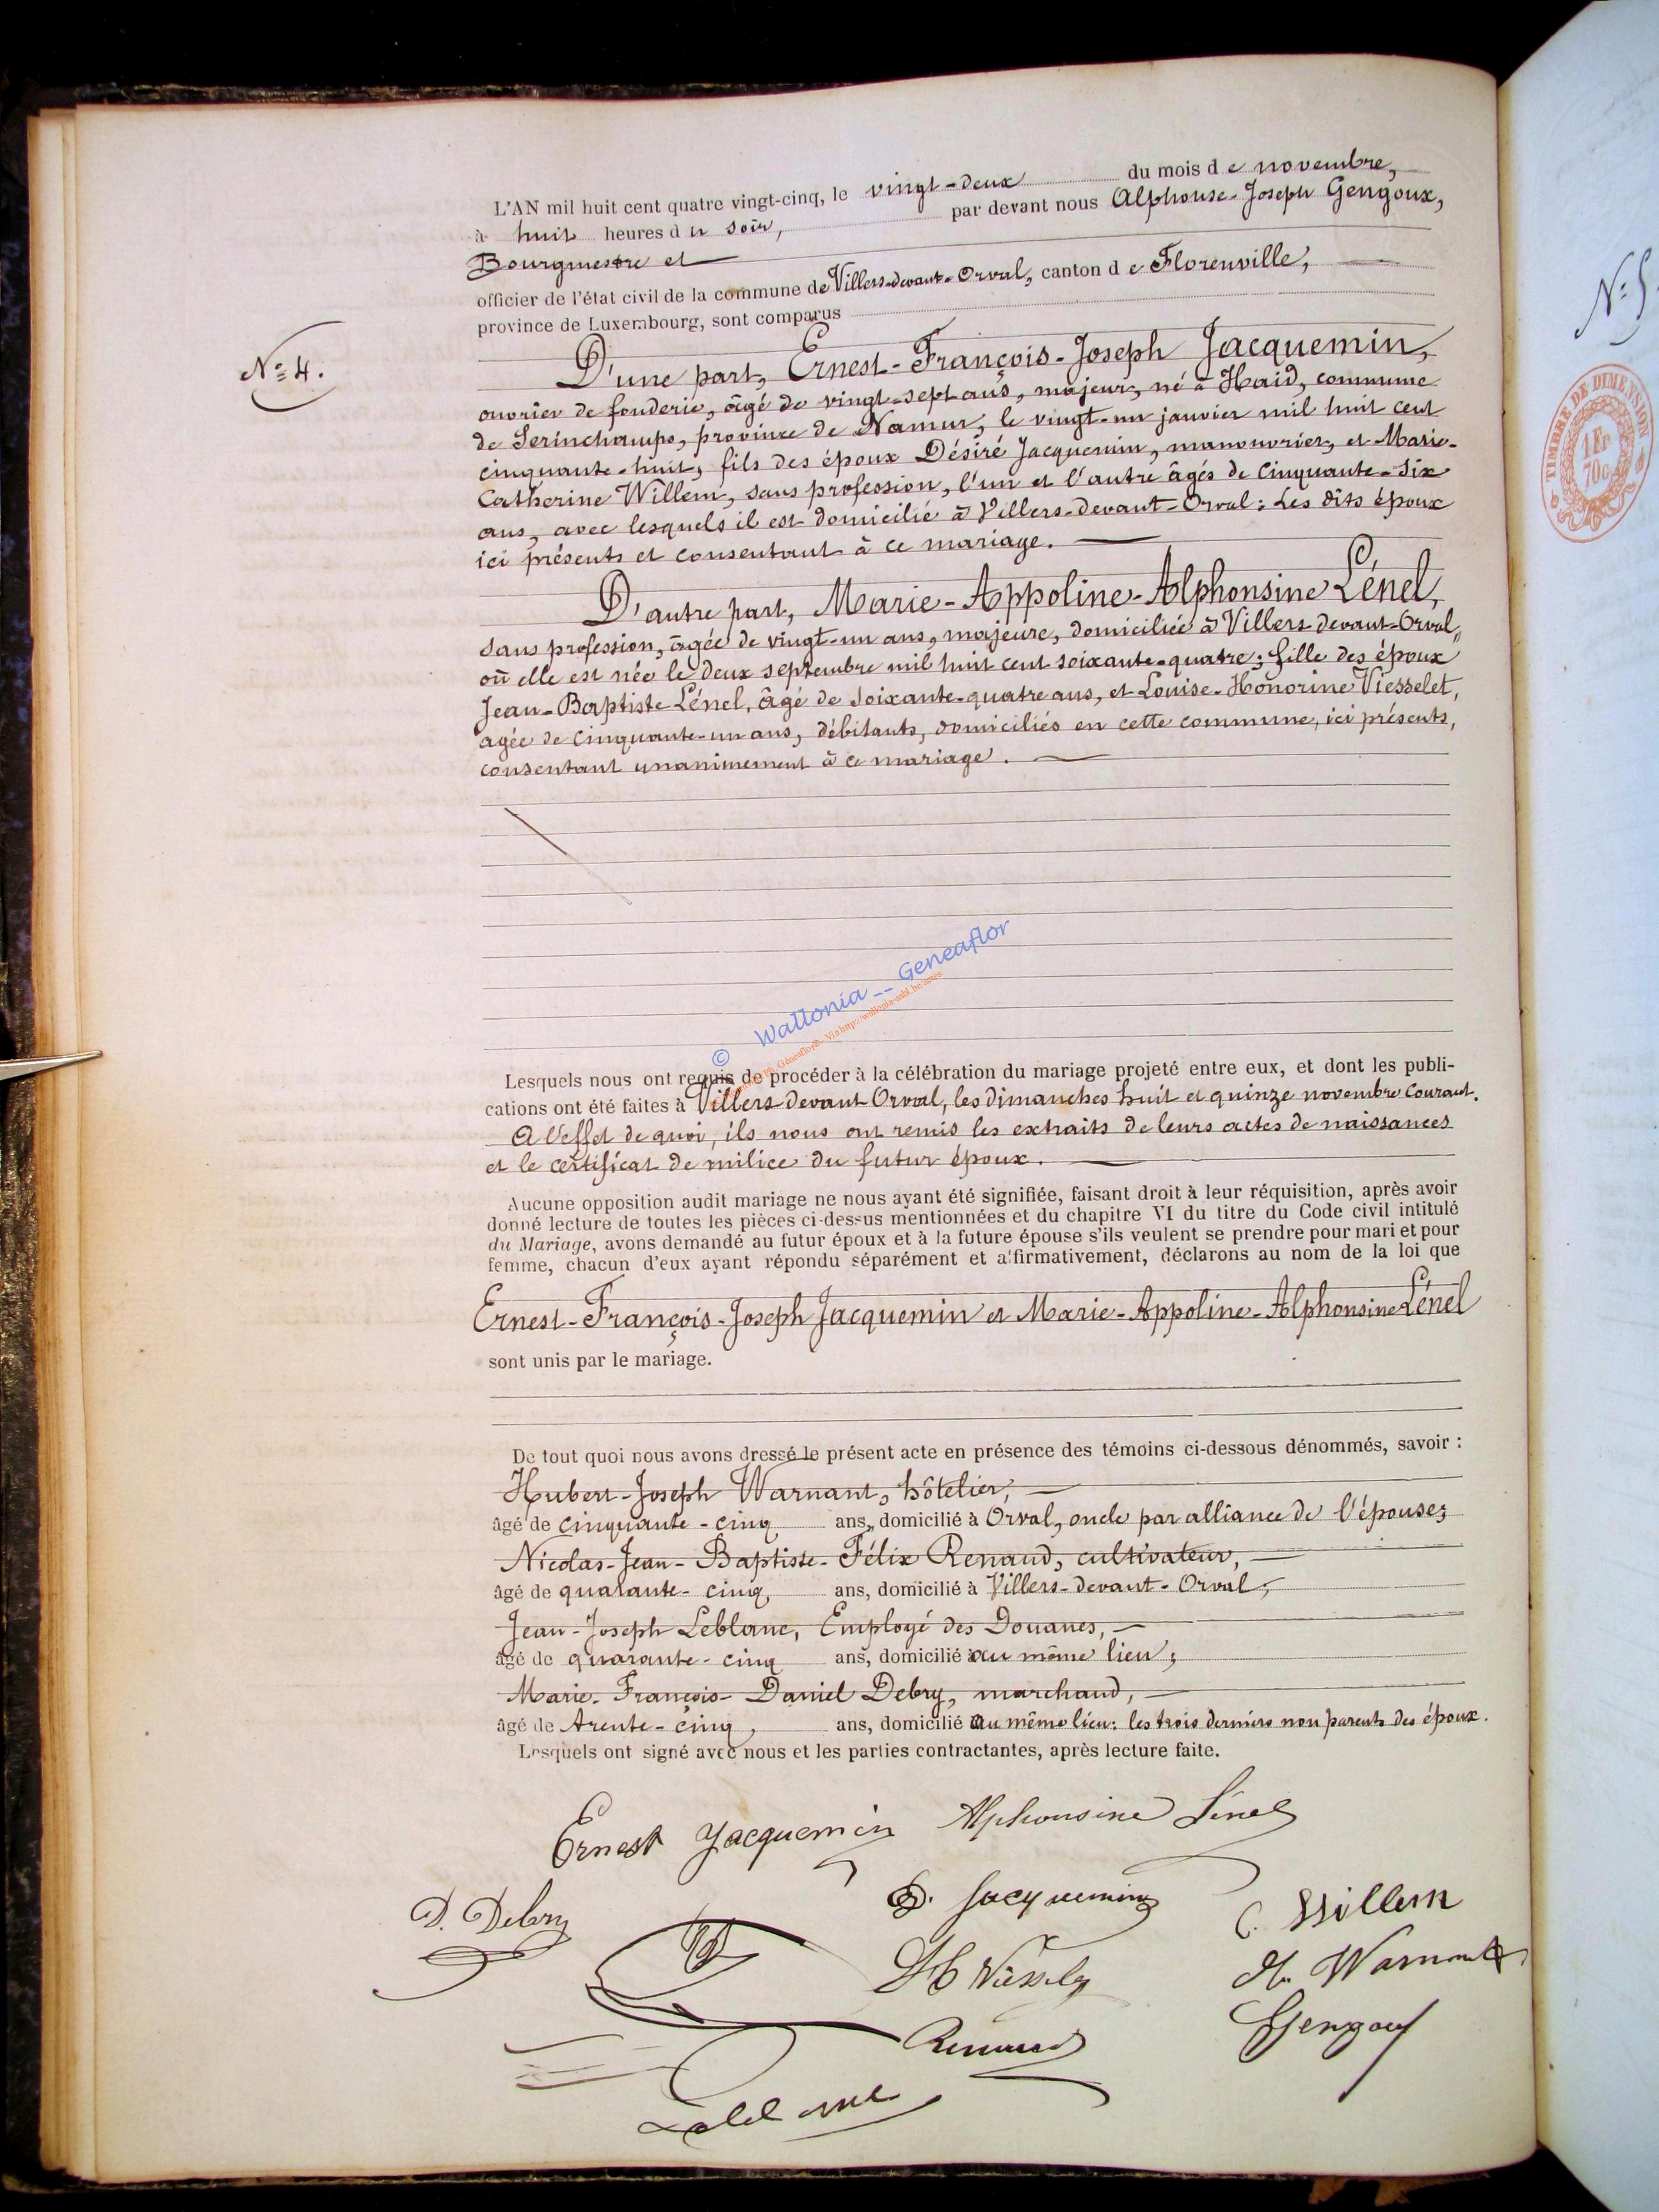 L'AN mil huit cent quatre vingt-cinq, le vingt-deux du mois de novembre,
à huit heures du soir, par devant nous Alphonse-Joseph Gengoux,
Bourgmestre et
officier de l'état civil de la commune de Villers-devant-Orval, canton de Florenville,
province de Luxembourg, sont comparus
N° 4.
D'une part, Ernest-François-Joseph Jacquemin,
ouvrier de fonderie, âgé de vingt-sept ans, majeur, né à Haid, commune
de Serinchamps, province de Namur, le vingt-un janvier mil huit cent
cinquante-huit, fils des époux Désiré Jacquemin, manouvrier, et Marie-
Catherine Willem, sans profession, l'un et l'autre âgés de cinquante-six
ans, avec lesquels il est domicilié à Villers-devant-Orval: Les dits époux
ici présents et consentant à ce mariage.
D'autre part, Marie-Appoline-Alphonsine Lénel,
sans profession, âgée de vingt-un ans, majeure, domiciliée à Villers-devant-Orval,
où elle est née le deux septembre mil huit cent soixante-quatre; fille des époux
Jean-Baptiste Lénel, âgé de soixante-quatre ans, et Louise-Honorine Viesselet,
agée de cinquante-un ans, débitants, domiciliés en cette commune, ici présents,
consentant unanimement à ce mariage.
© Wallonia -- Geneaflor
Lesquels nous ont requis de procéder à la célébration du mariage projeté entre eux, et dont les publi-
cations ont été faites à Villers-devant-Orval, les dimanches huit et quinze novembre courant.
A l'effet de quoi, ils nous ont remis les extraits de leurs actes de naissances
et le certificat de milice du futur époux.
Aucune opposition audit mariage ne nous ayant été signifiée, faisant droit à leur réquisition, après avoir
donné lecture de toutes les pièces ci-dessus mentionnées et du chapitre VI du titre du Code civil intitulé
du Mariage, avons demandé au futur époux et à la future épouse s'ils veulent se prendre pour mari et pour
femme, chacun d'eux ayant répondu séparément et affirmativement, déclarons au nom de la loi que
Ernest-François-Joseph Jacquemin et Marie-Appoline-Alphonsine Lénel
sont unis par le mariage.
De tout quoi nous avons dressé le présent acte en présence des témoins ci-dessous dénommés, savoir :
Hubert-Joseph Warnant, hôtelier,
âgé de cinquante-cinq ans, domicilié à Orval, oncle par alliance de l'épouse;
Nicolas-Jean-Baptiste-Félix Renaud, cultivateur,
âgé de quarante-cinq ans, domicilié à Villers-devant-Orval;
Jean-Joseph Leblanc, Employé des Douanes,
âgé de quarante-cinq ans, domicilié au même lieu;
Marie-François-Daniel Debry, marchand,
âgé de trente-cinq, ans, domicilié au même lieu: les trois derniers non parents des époux.
Lesquels ont signé avec nous et les parties contractantes, après lecture faite.
Ernest Jacquemin Alphonsine Lénel
D. Debry
D. Jacquemin
C. Willem
H. Warnant
Renaud
Gengoux
TIMBRE DE DIMENSION
1 Fr
70c